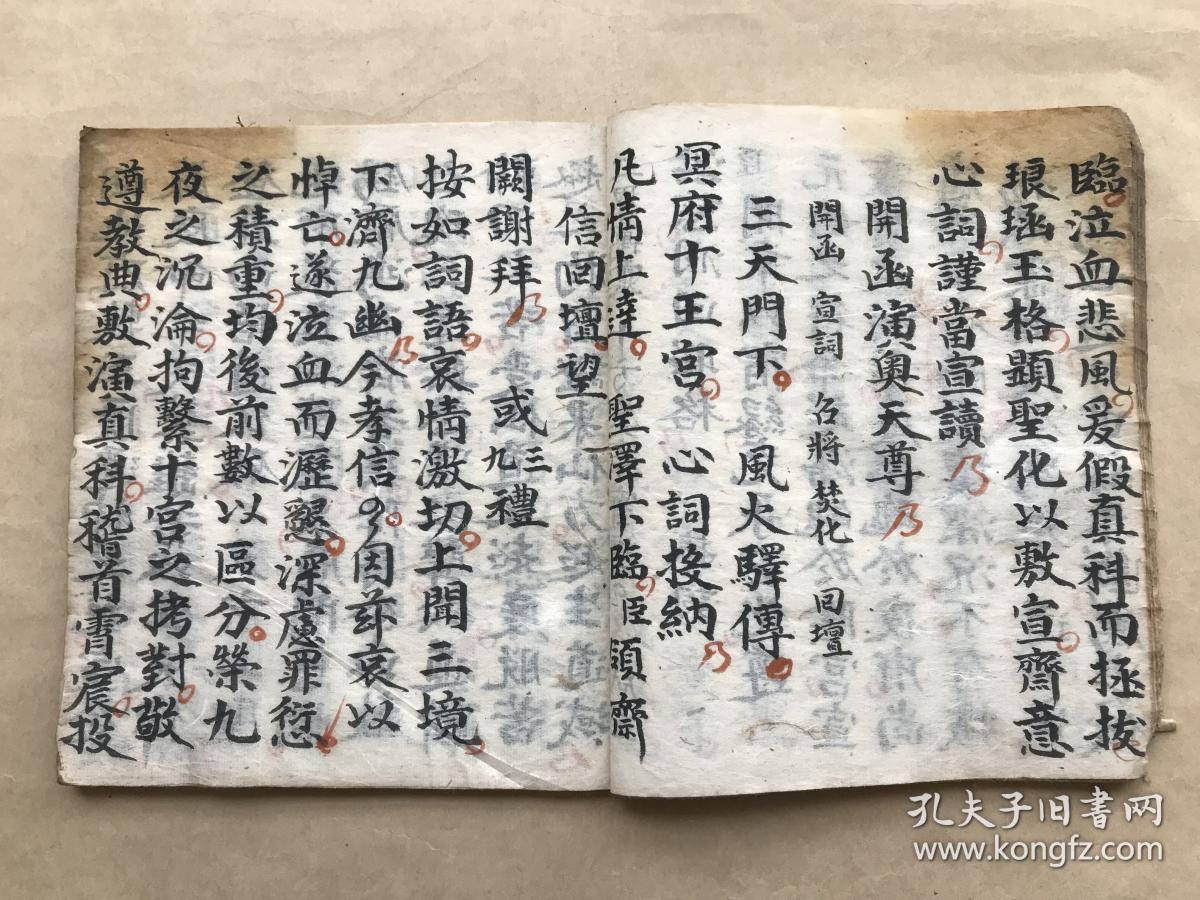 臨泣血悲風爰假真科而拯拔
琅函玉格顯聖化以敷宣齋意
心詞謹當宣讀乃
開函演奧天尊乃
開函 宣詞 召將焚化 回壇
三天門下 風火驛傳
冥府十王宮 心詞投納乃
凡情上達聖澤下臨臣領齋
信回壇望
闕謝拜乃 或三九禮
按如詞語哀情激切上聞三境
下濟九幽乃今孝信 因茲哀以
悼亡遂泣血而瀝懇深慮罪愆
之積重均後前數以區分榮九
夜之沉淪拘繫十宮之拷對敬
遵教典敷演真科稽首霄宸投
孔夫子旧书网
www.kongfz.com